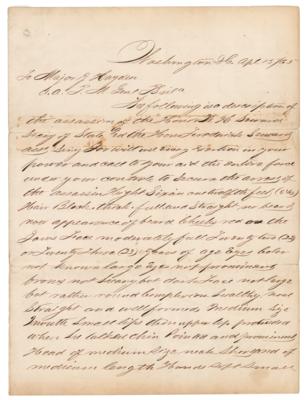 Washington DC Apl 15/65
To Major J Hayden
A.A. P M Genl
The following is a description of
the assassin of the Honor W H Seward
Secy of State and the Hon Frederick Seward
Asst Secy You will use every exertion in your
power and call to your aid the entire force
under your control to secure the arrest of
the assassin Hight Six and one half feet (6½)
Hair Black thick full and Straight no beard
nor appearance of beard Cheeks red on the
Jaws Face moderately full Twenty two (22)
or Twenty three (23) years of age Eyes color
not known large Eyes not prominent
brows not heavy but dark Face not large
but rather round Complexion healthy nose
Straight and well formed medium size
mouth small lips thin upper lip protruded
when he talked chin Pointed and prominent
Head of medium size neck Short and of
medium length Hands soft small